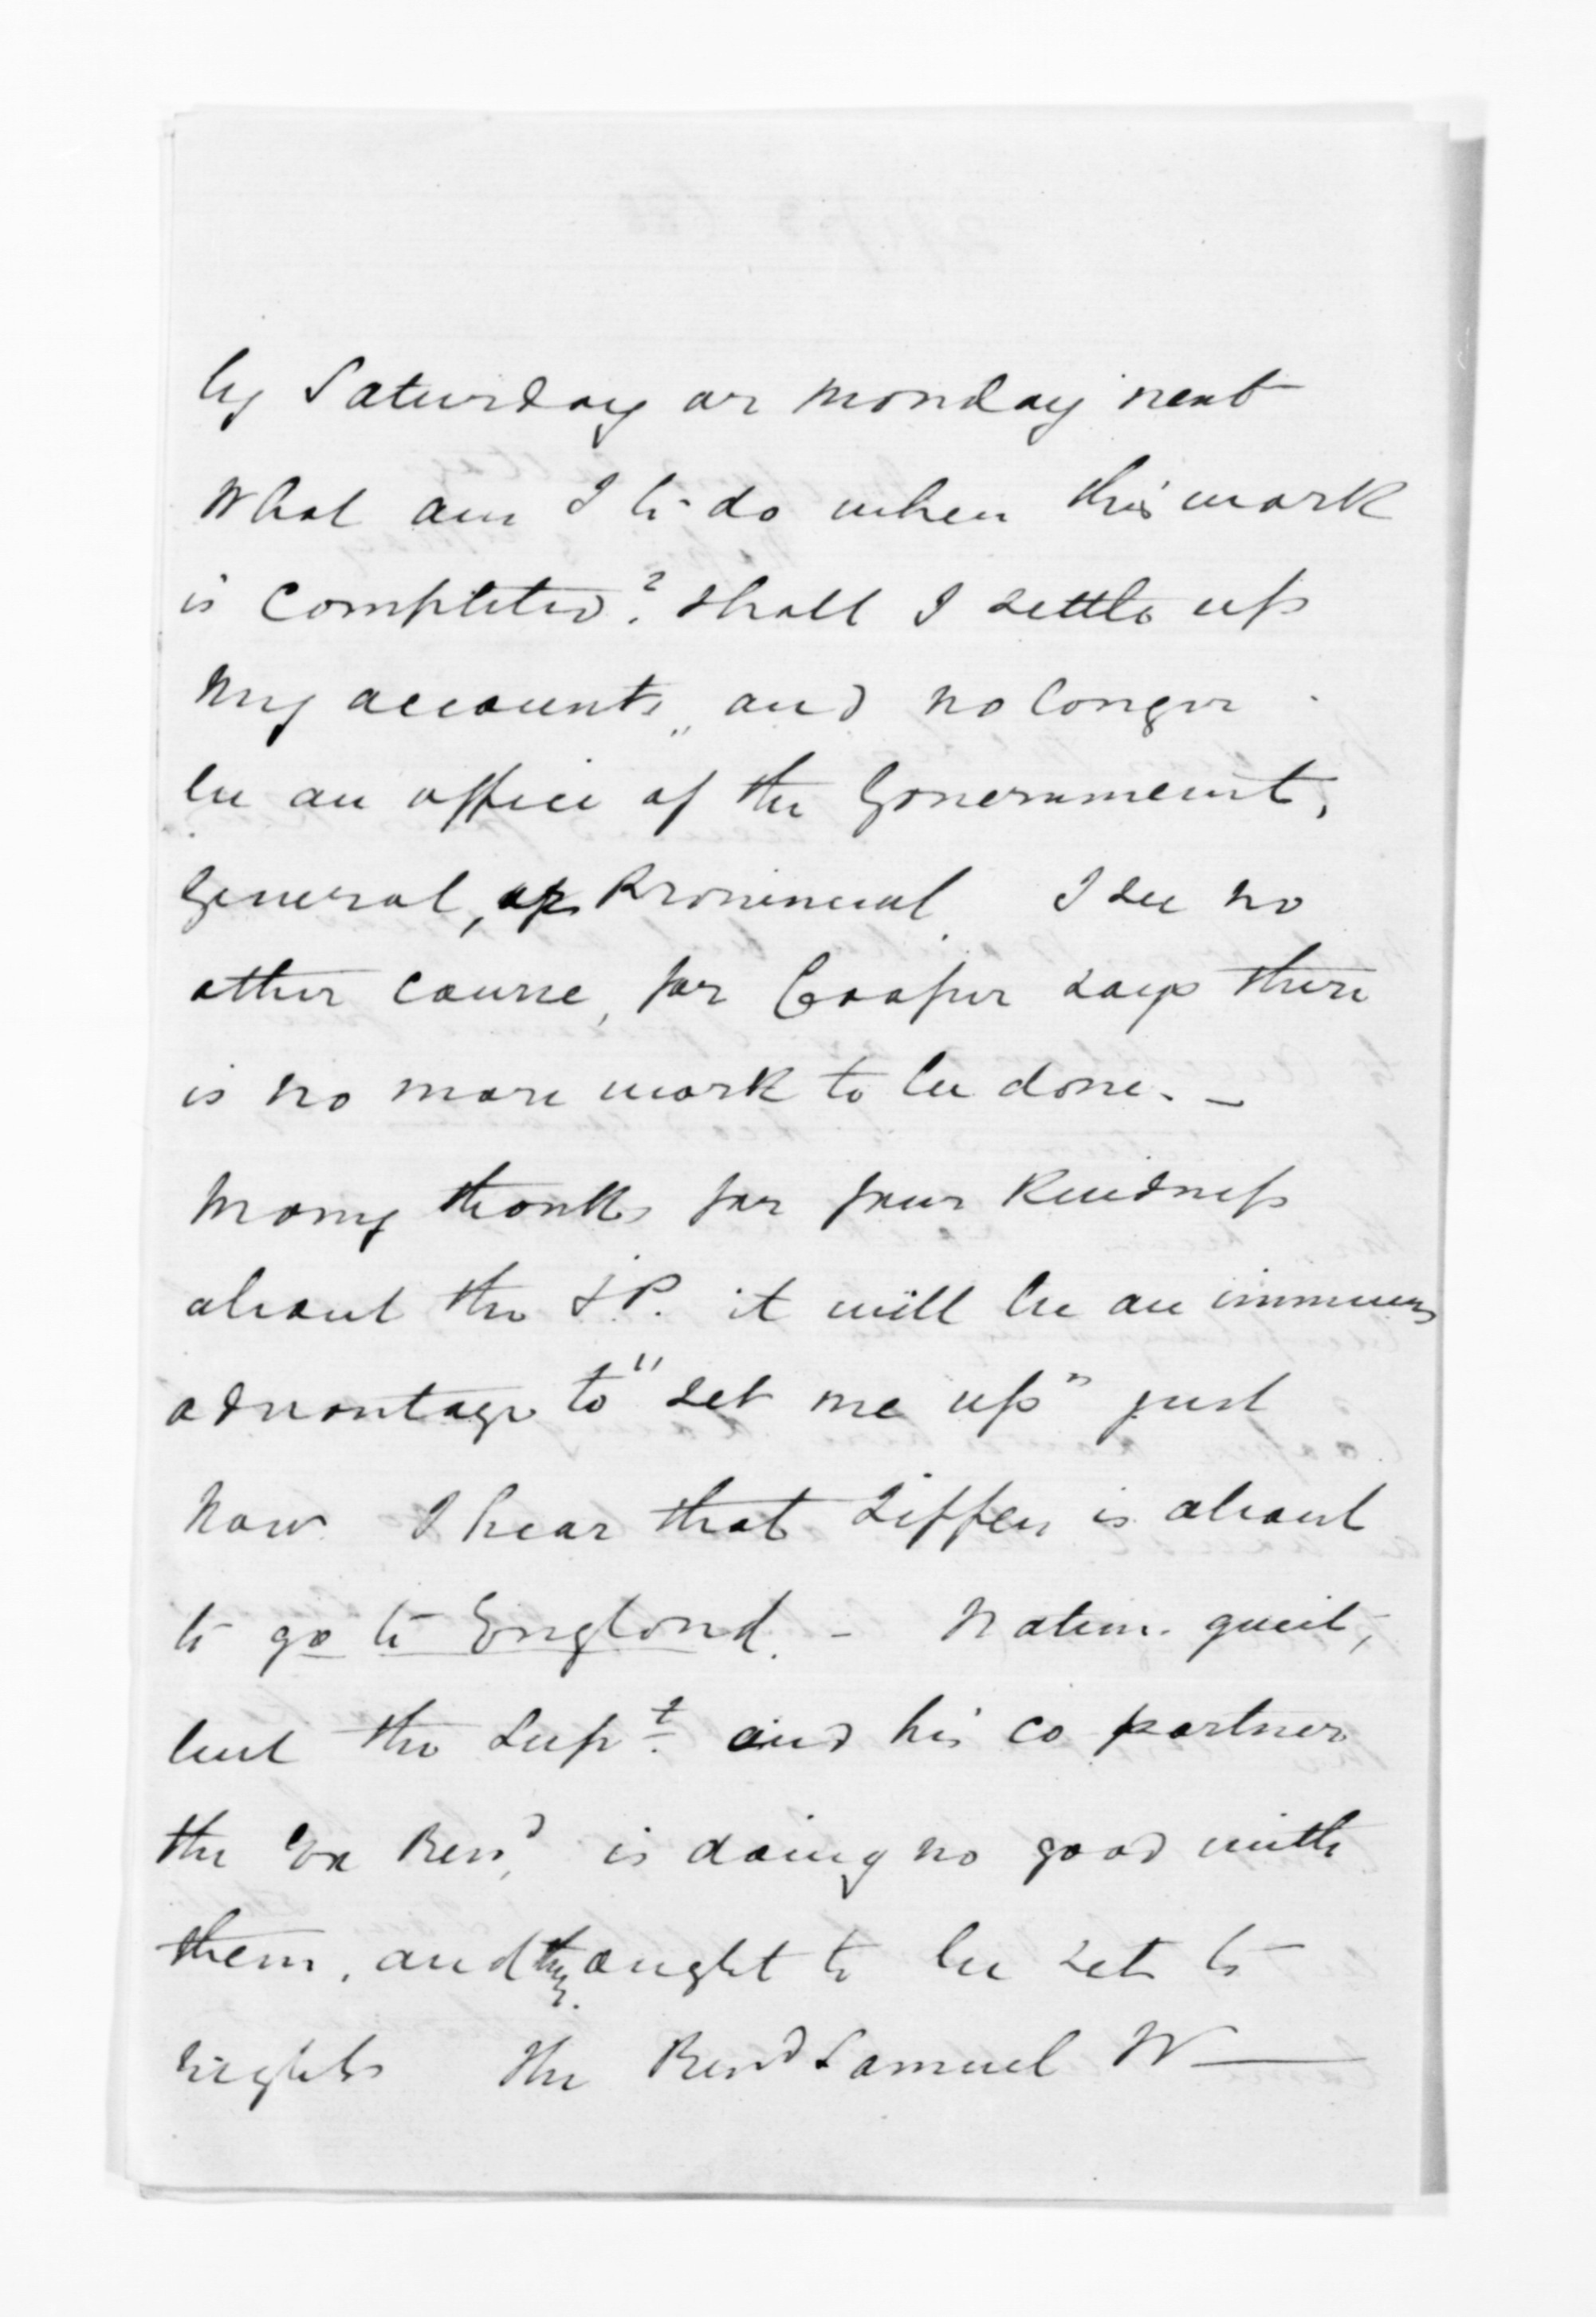 by Saturday or Monday next
What am I to do when this work
is completed? Shall I settle up
my accounts, and no longer
be an office of the Government,
General, or Provincial. I see no
other course, for Cooper says there
is no more work to be done. _
Many thanks for your kindness
about the J.P. it will be an immense
advantage to "set me up" just
now. I hear that Ziffen is about
to go to England. - Natives quiet,
but the Supt. and his co partner
the Ex Revd, is doing no good with
them, and they ought to be set to
rights The Revd Samuel W——